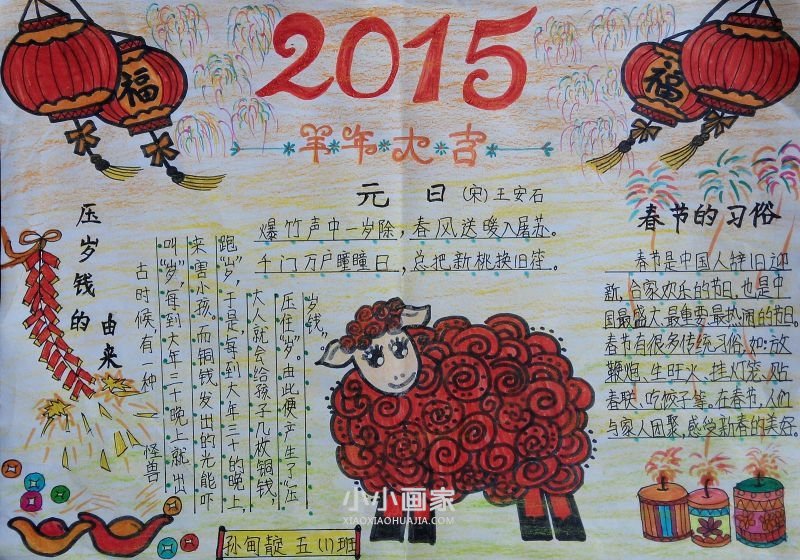 2015
福
福
羊年大吉
元 日 (宋) 王安石
爆竹声中一岁除，春风送暖入屠苏。
千门万户瞳瞳日，总把新桃换旧符。
压岁钱的
由来
古时候，有一种 怪兽
叫“岁”，每到大年三十晚上就出
来害小孩。而铜钱发出的光能吓
跑“岁”，于是，每到大年三十的晚上，
大人就会给孩子几枚铜钱，
压住“岁”。由此便产生了“压
岁钱”。
春节的习俗
春节是中国人辞旧迎
新、合家欢乐的节日，也是中
国最盛大最重要最热闹的节日。
春节有很多传统习俗，如：放
鞭炮、生旺火、挂灯笼、贴
春联、吃饺子等。在春节，人们
与家人团聚，感受新春的美好。
小小画家
XIAOXIAOHUAJIA.COM
孙甸靛 五(1)班